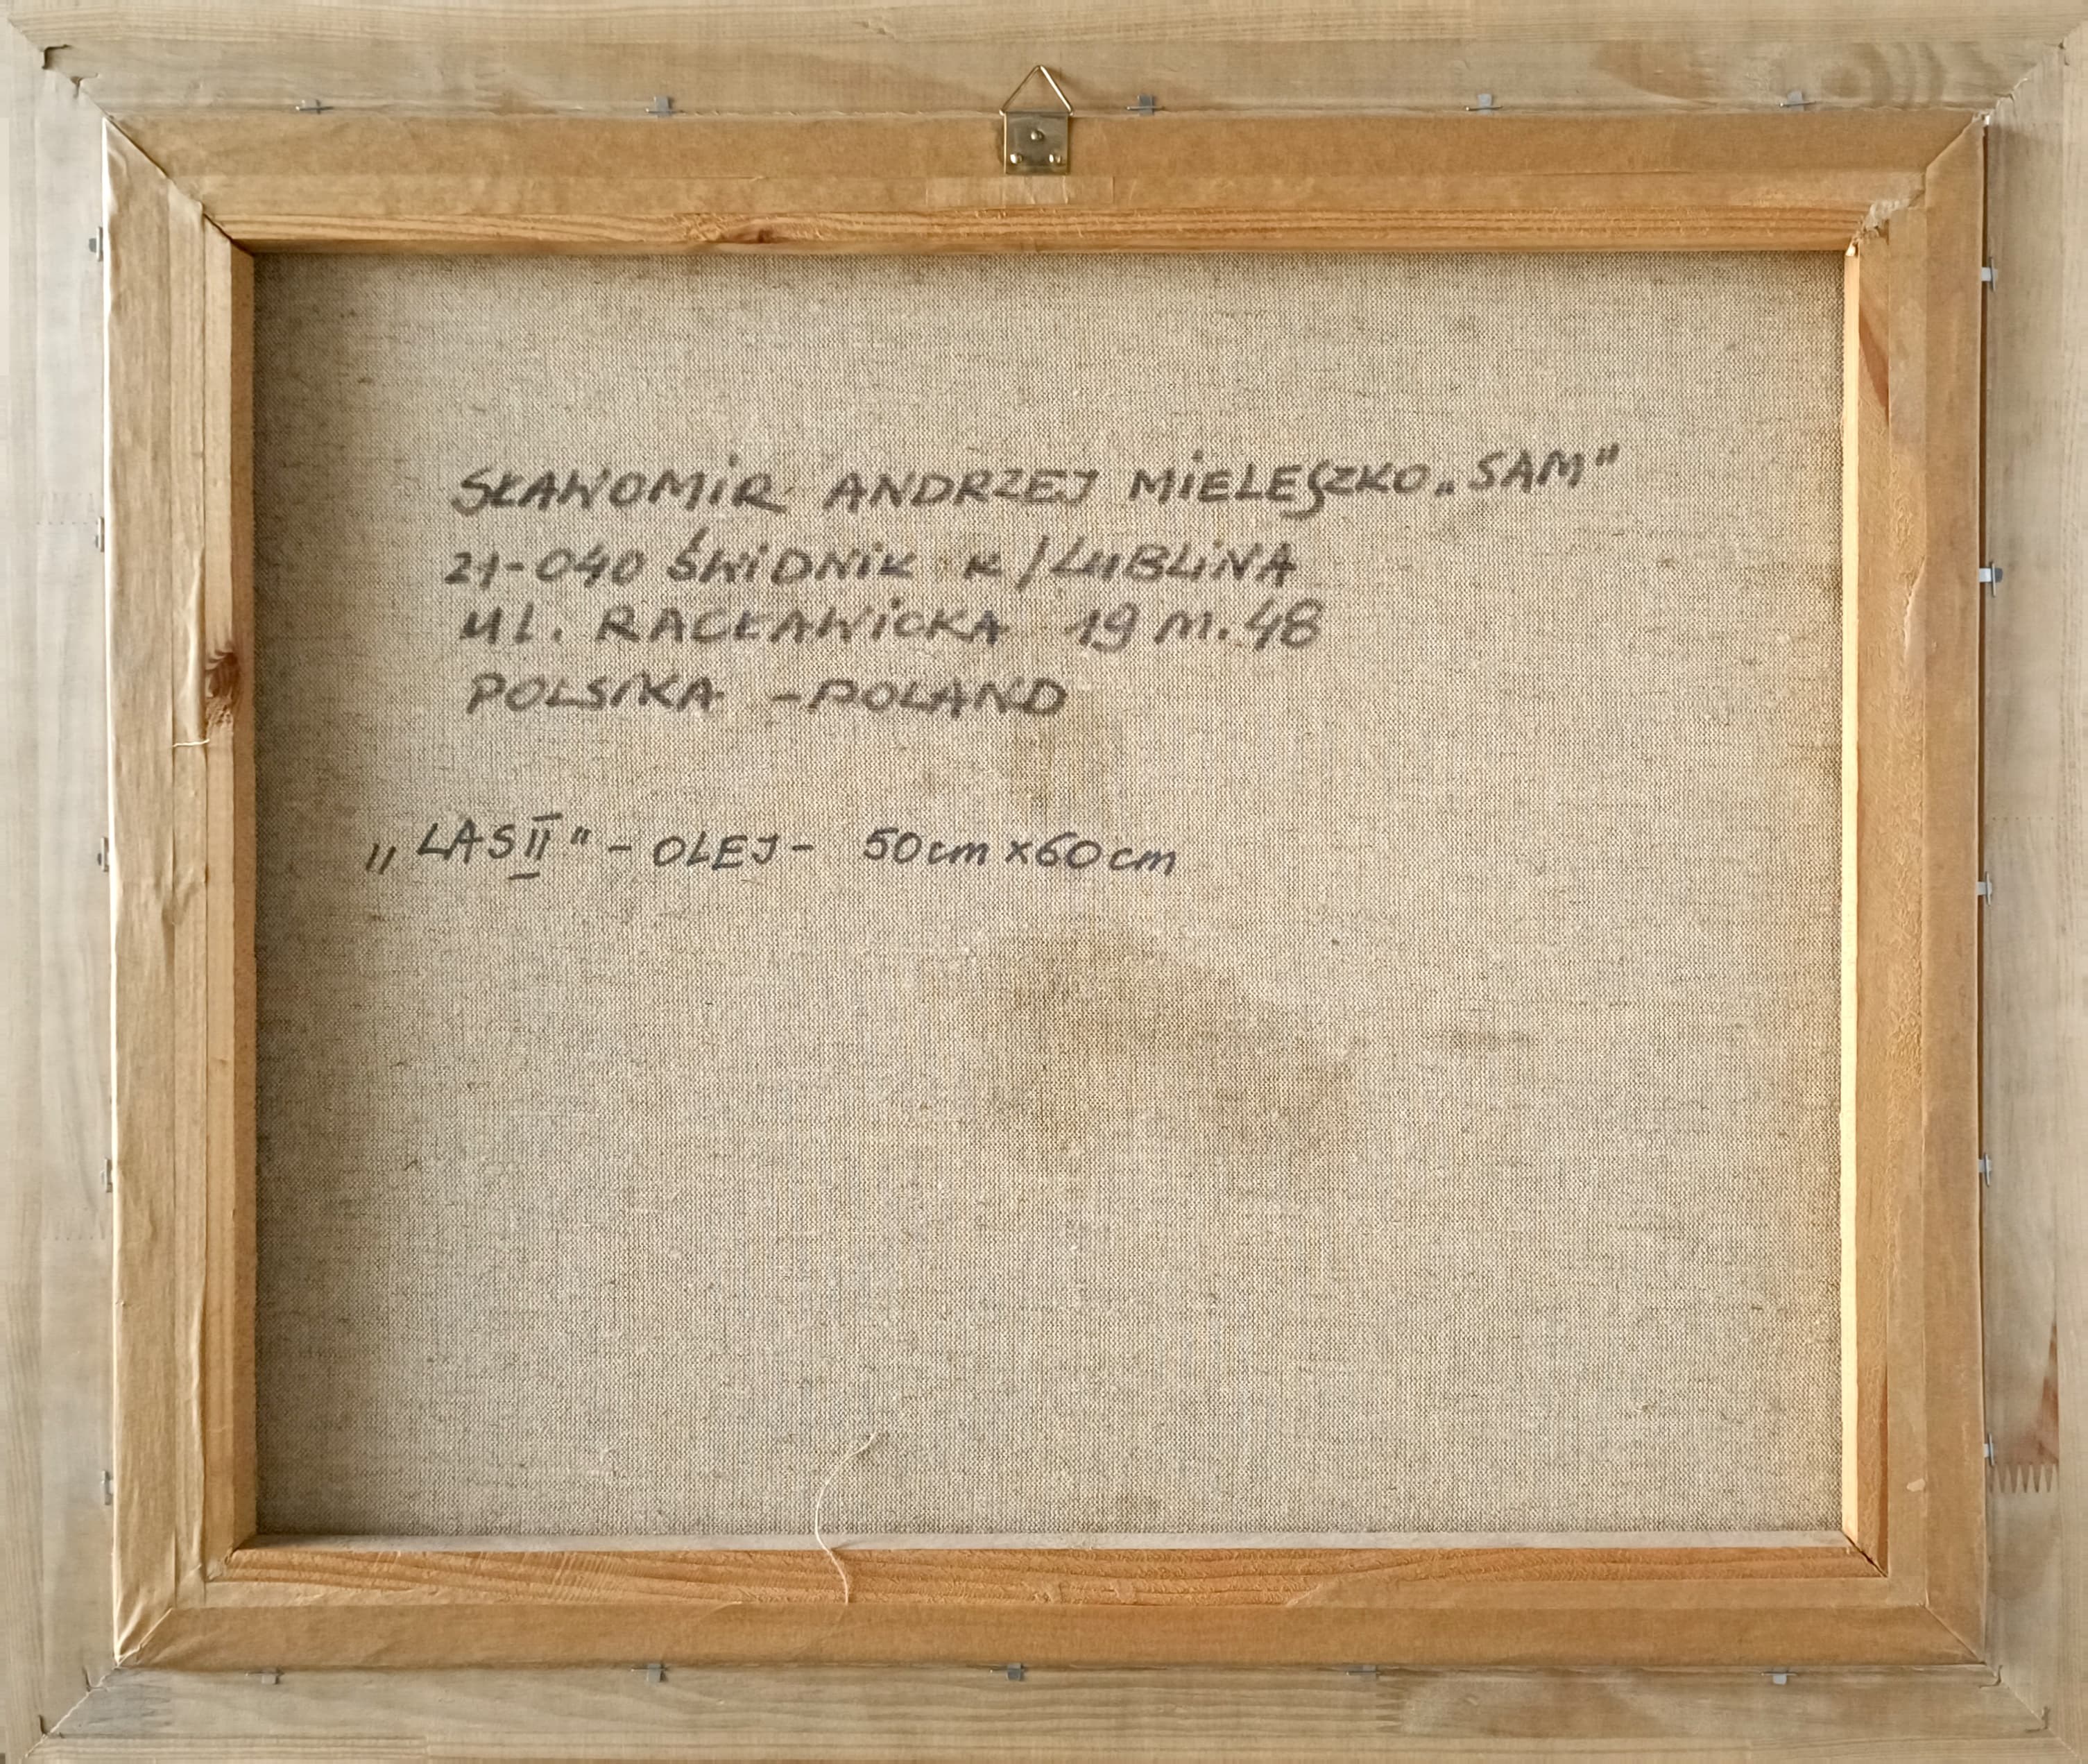 SŁAWOMiR ANDRZEJ MiELESZKO „SAM"
21-040 ŚWiDNiK K/LUBLiNA
UL. RACŁAWiCKA 19 m. 48
POLSKA - POLAND
„LAS II" - OLEJ - 50cm x 60cm